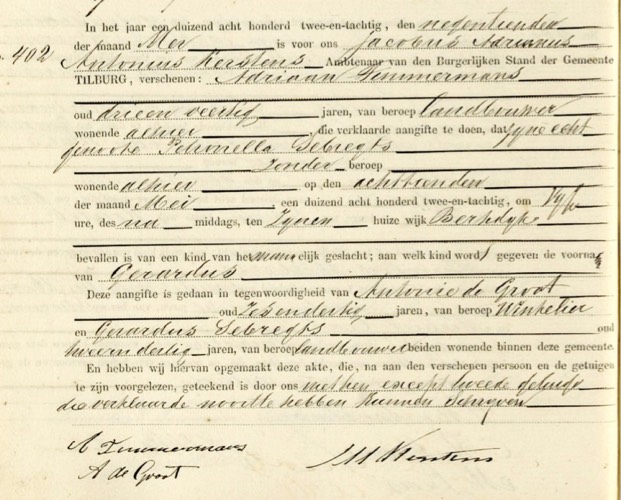 In het jaar een duizend acht honderd twee-en-tachtig, den negentienden
der maand Mei is voor ons Jacobus Adrianus
402 Antonius Kerstens Ambtenaar van den Burgerlijken Stand der Gemeente
TILBURG, verschenen: Adriaan Timmermans
oud drieen veertig jaren, van beroep landbouwer
wonende alhier, die verklaarde aangifte te doen, dat zyne echt
genoote Petronella Sebregts
Zonder beroep
wonende alhier op den achttienden
der maand Mei een duizend acht honderd twee-en-tachtig, om Vyf
ure, des na middags, ten Zynen huize wijk Berkdyk
bevallen is van een kind van het mannelijk geslacht; aan welk kind word gegeven de voornaam
van Gerardus
Deze aangifte is gedaan in tegenwoordigheid van Antonie de Groot
oud Zesendertig jaren, van beroep Winkelier
en Gerardus Sebregts oud
tweeendertig jaren, van beroep landbouwer beiden wonende binnen deze gemeente.
En hebben wij hiervan opgemaakt deze akte, die, na aan den verschenen persoon en de getuigen
te zijn voorgelezen, geteekend is door ons met hen except tweede getuige
die verklaarde nooitte hebben kunnen Schryven
A Timmermans
A de Groot
Kerstens